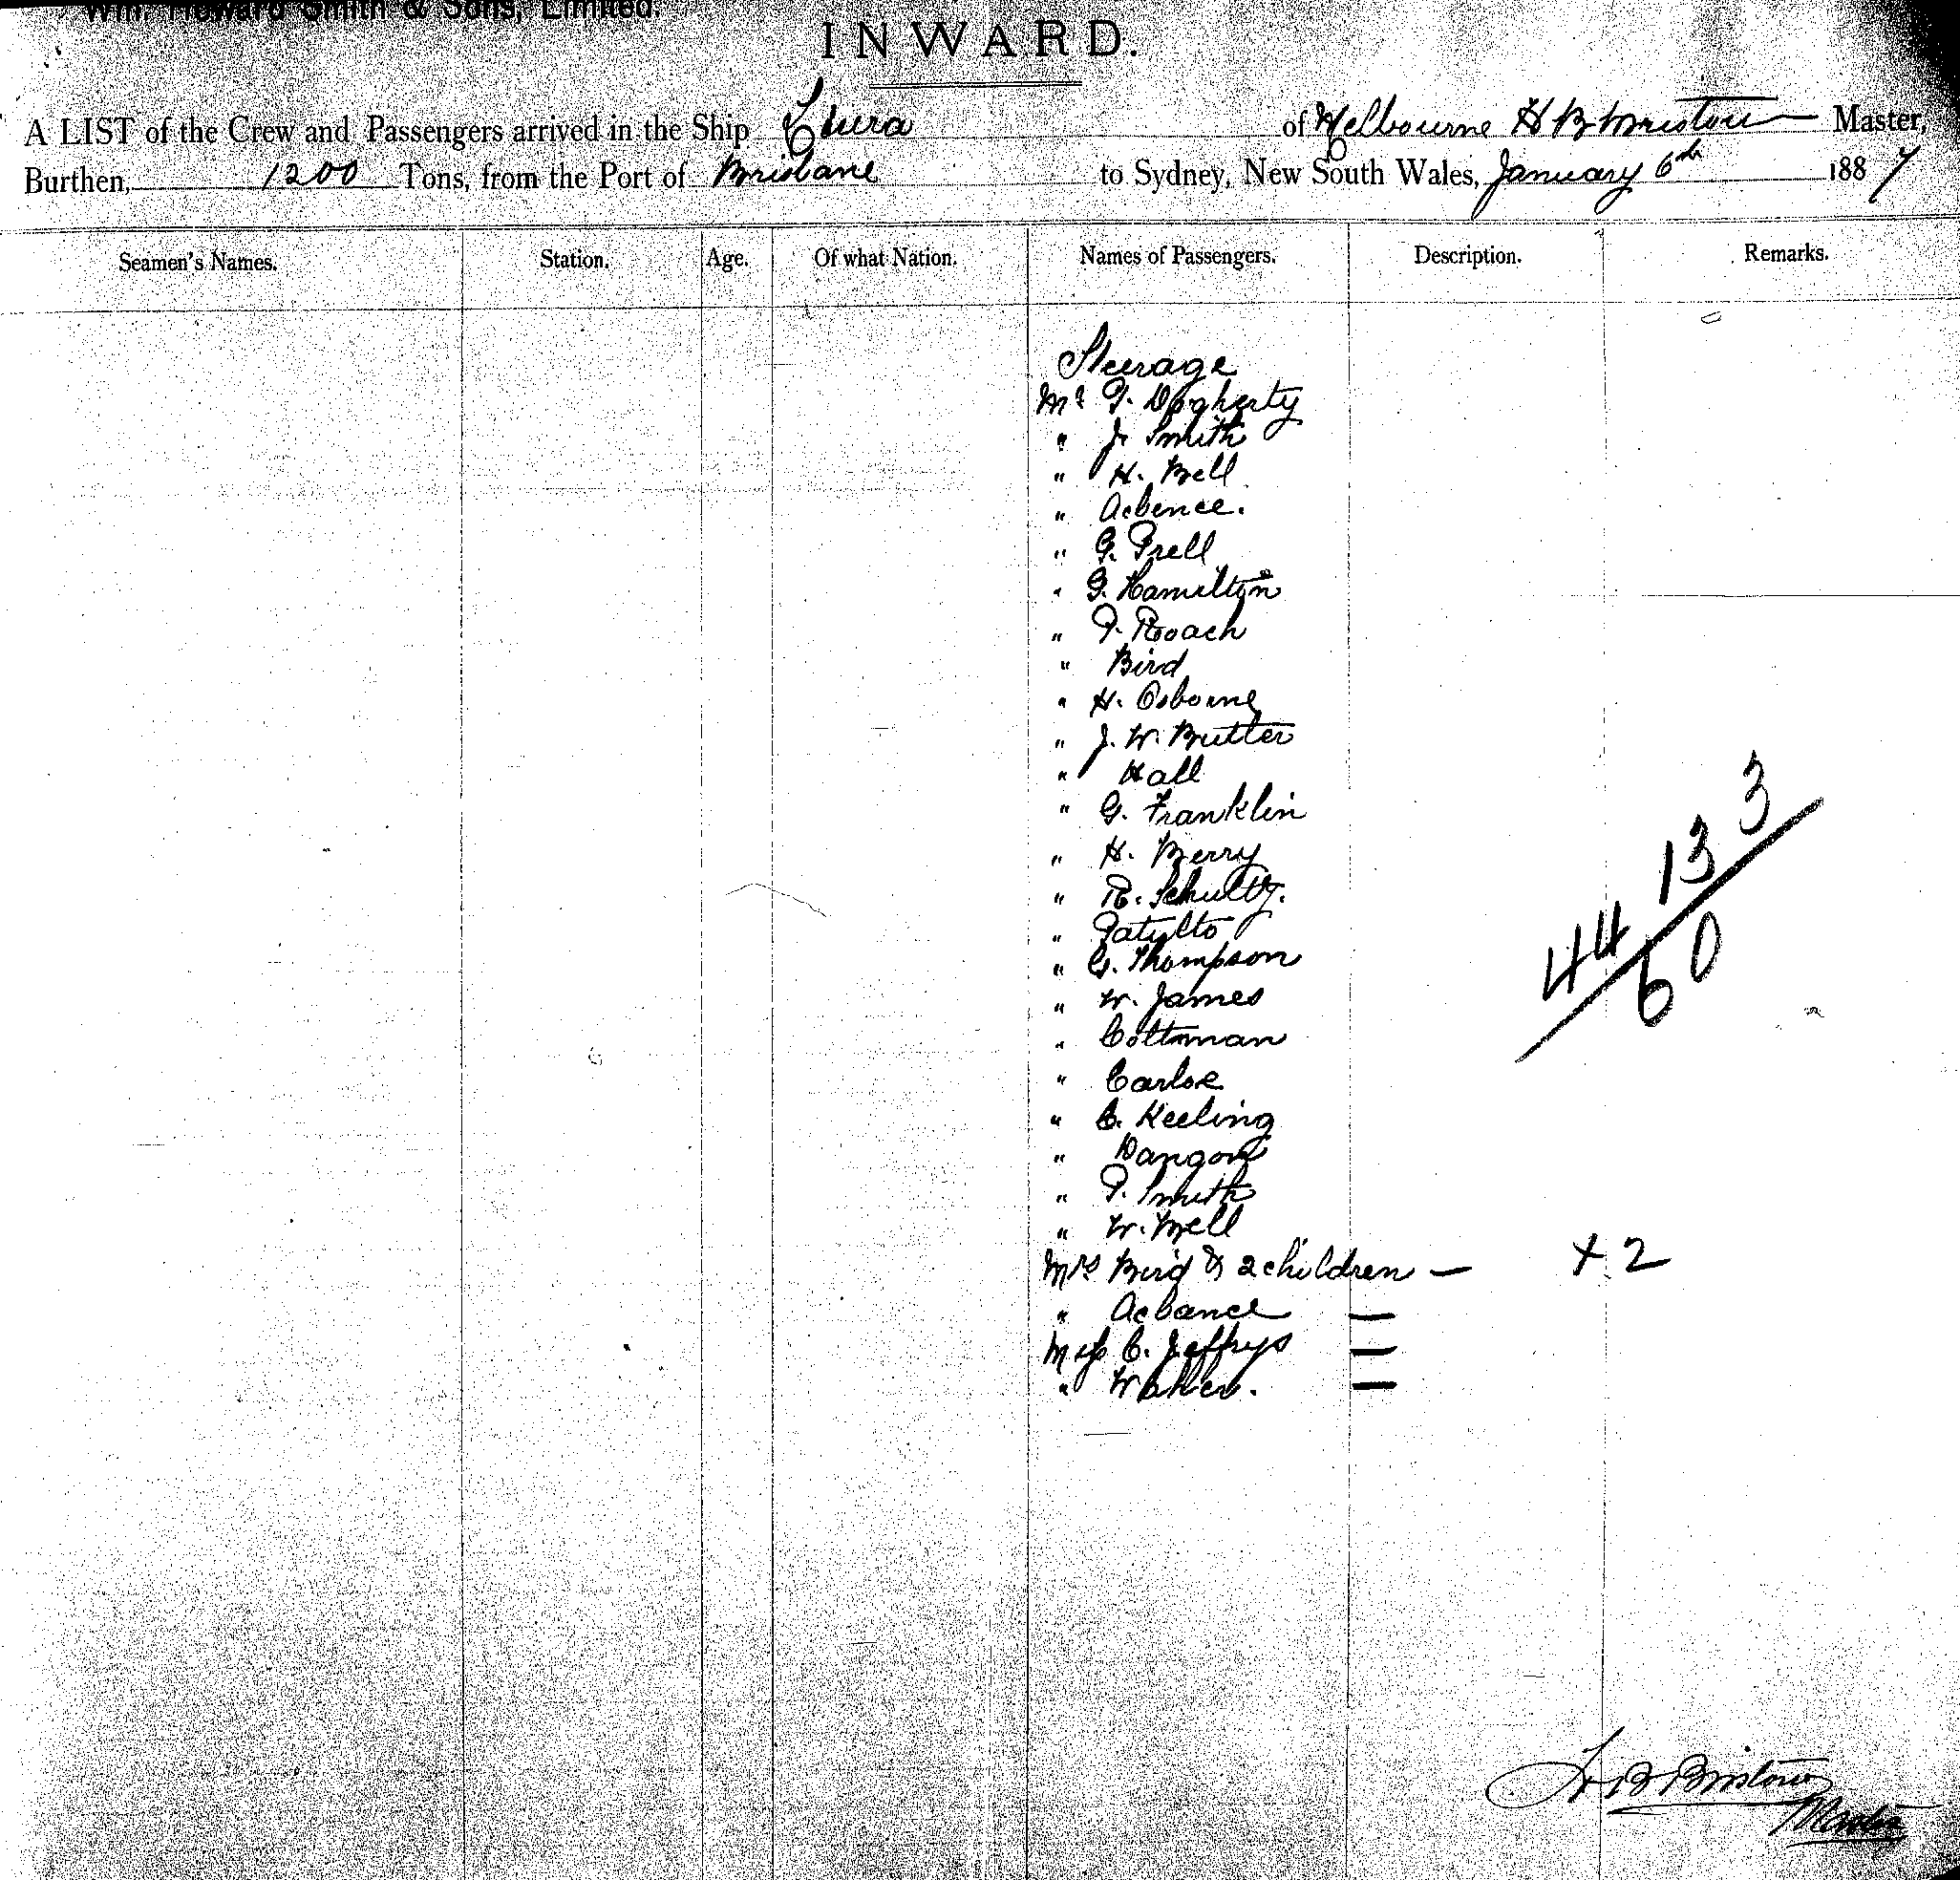 Wm. Howard Smith & Sons, Limited.
INWARD.
A LIST of the Crew and Passengers arrived in the Ship of Melbourne H B Bristow Master,
Burthen, 1200 Tons, from the Port of Brisbane to Sydney, New South Wales, January 6th 1887
Seamen's Names. Station. Age. Of what Nation. Names of Passengers. Description. Remarks.
Steerage
Mr T. Dogherty
" J. Smith
" H. Bell
" Acbence.
" G. Prell
" G. Hamilton
" T. Roach
" Bird
" H. Osborne
" J. W. Butler
" Hall
" G. Franklin
" H. Berry
" R. Schultz.
"
" G. Thompson
" W. James
" Coltman
" Carlse
" C. Keeling
"
" P. Smith
" W. Mell
Mrs Bird & 2 children — + 2
" Acbance —
Miss C. Jeffrys —
" —
44 13 3
60
H B Bristow
Master